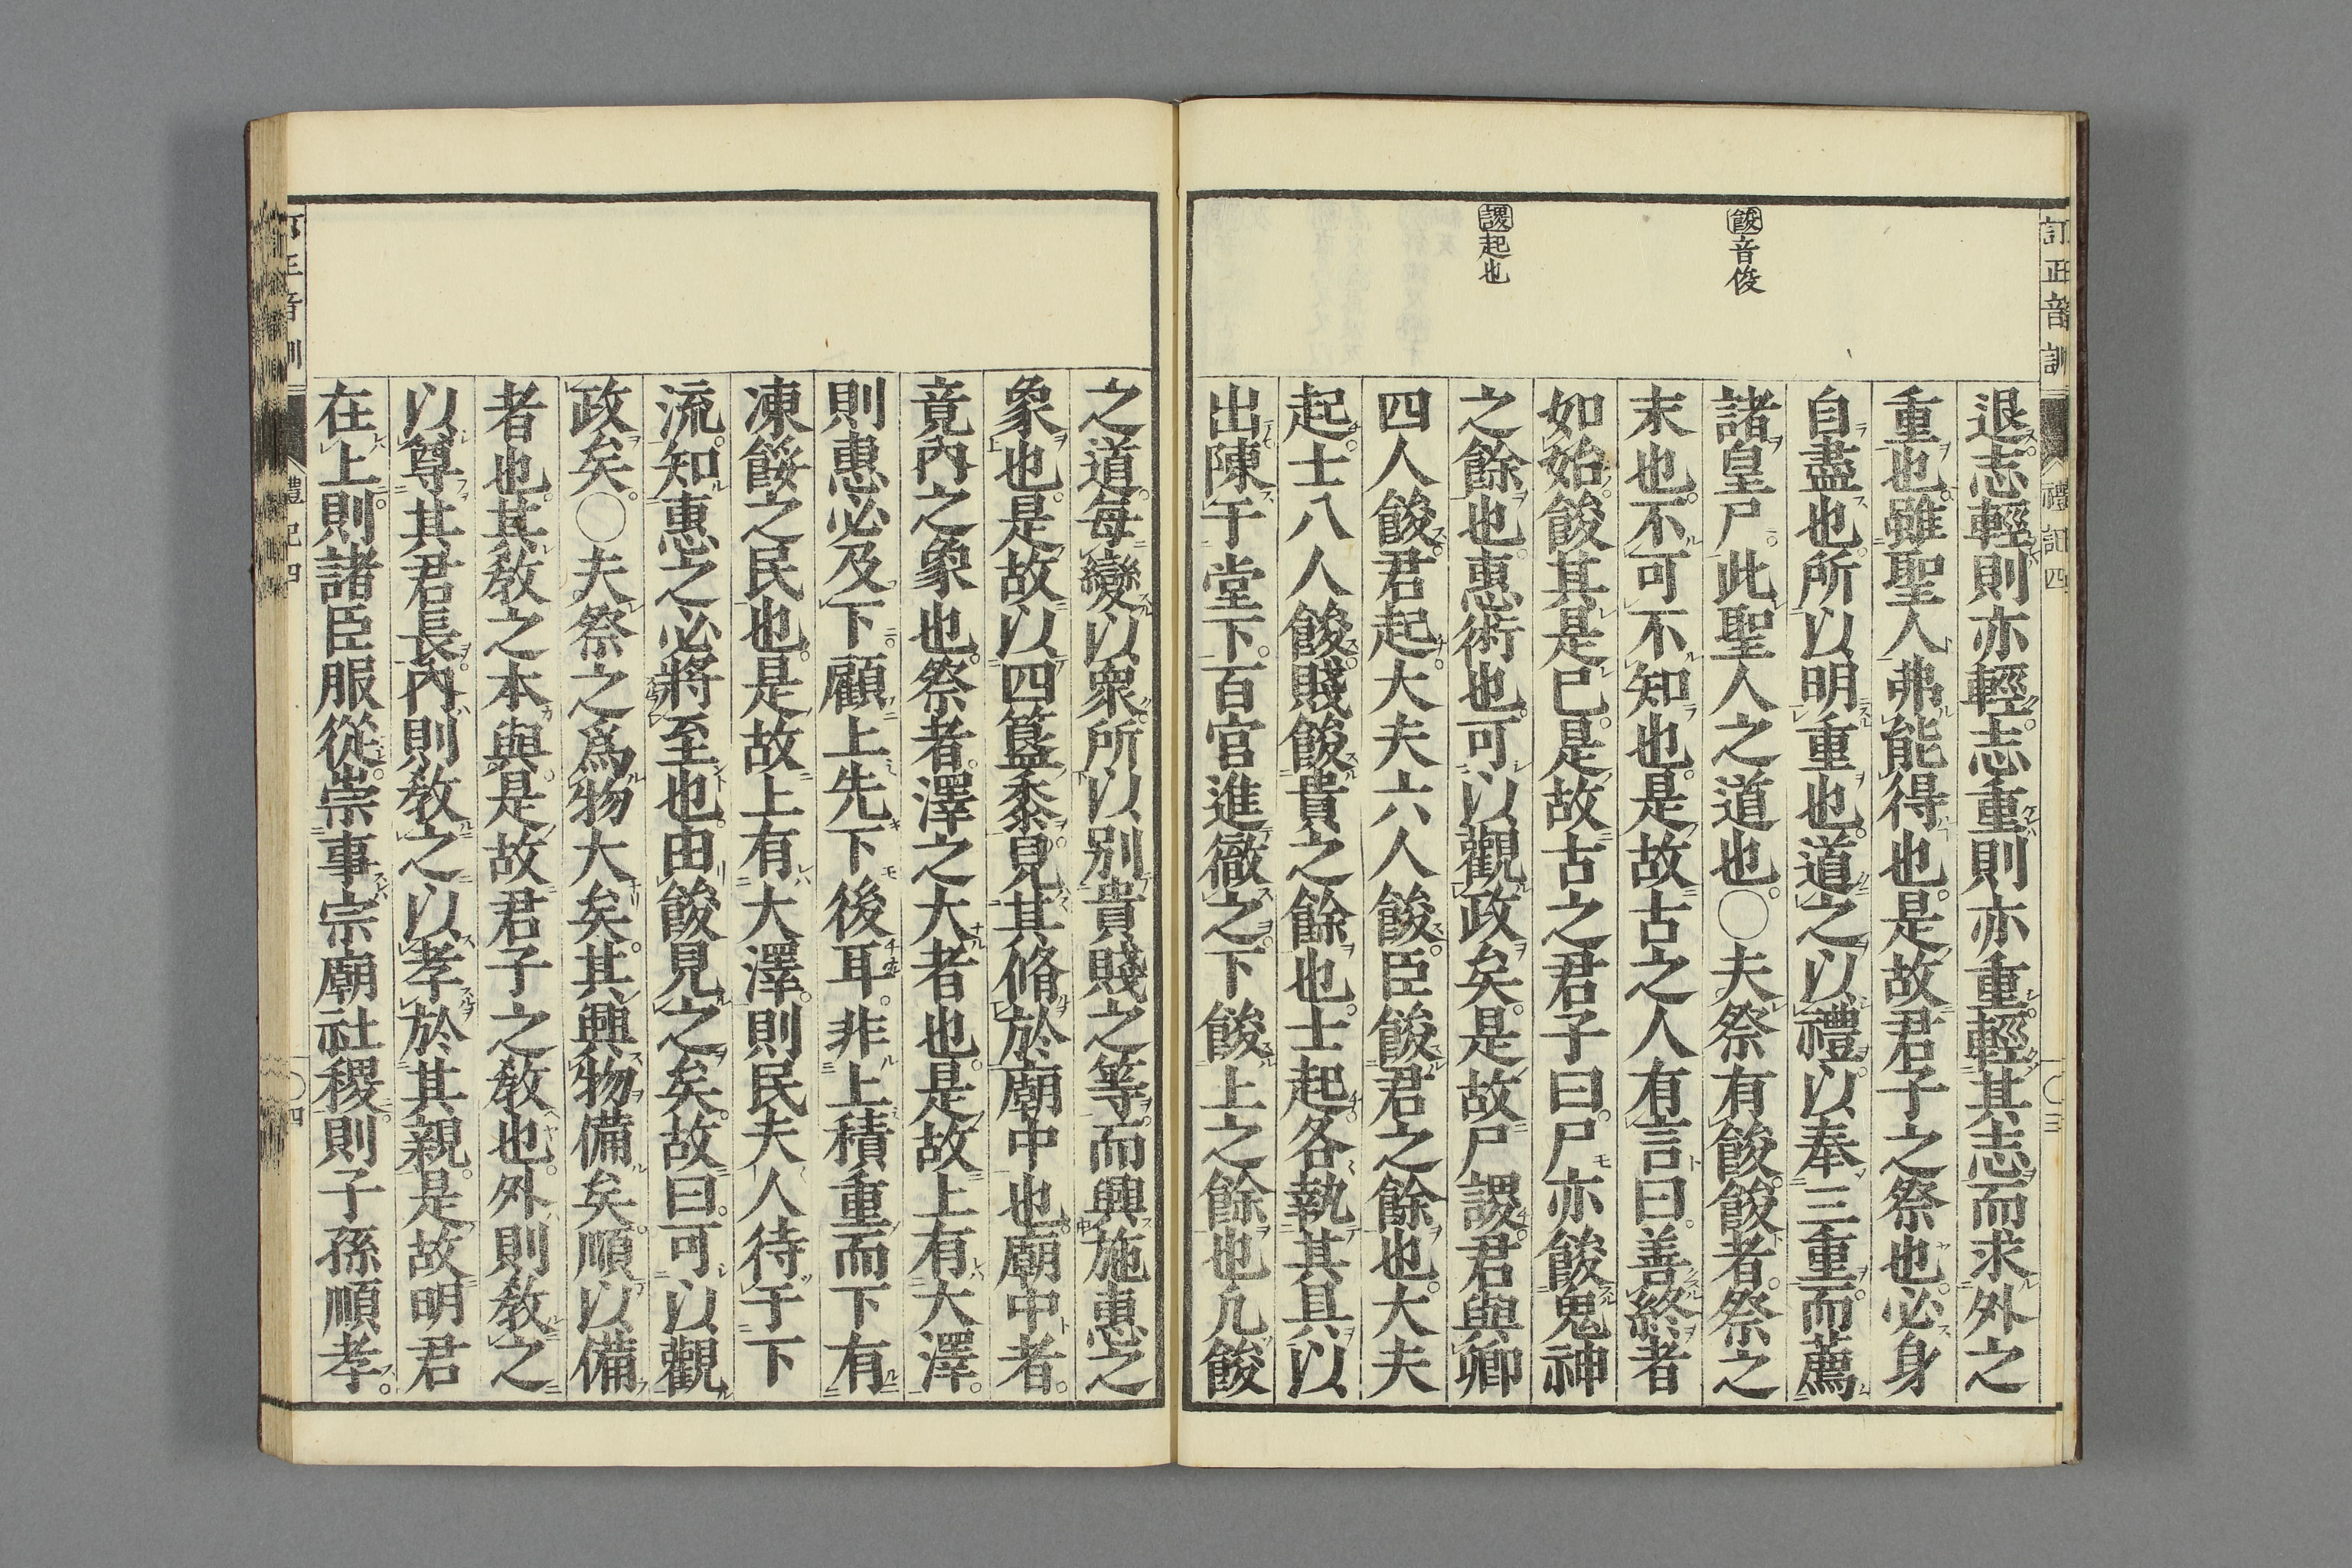 訂正音訓
禮記四
〇三
餕音俊
謖起也
退志輕則亦輕志重則亦重輕其志而求外之
重也雖聖人弗能得也是故君子之祭也必身
自盡也所以明重也道之以禮以奉三重而薦
諸皇尸此聖人之道也〇夫祭有餕餕者祭之
末也不可不知也是故古之人有言曰善終者
如始餕其是已是故古之君子曰尸亦餕鬼神
之餘也惠術也可以觀政矣是故尸謖君與卿
四人餕君起大夫六人餕臣餕君之餘也大夫
起士八人餕賤餕貴之餘也士起各執其具以
出陳于堂下百官進徹之下餕上之餘也凡餕
之道每變以衆所以別貴賤之等而興施惠之
象也是故以四簋黍見其脩於廟中也廟中者
竟內之象也祭者澤之大者也是故上有大澤
則惠必及下顧上先下後耳非上積重而下有
凍餒之民也是故上有大澤則民夫人待于下
流知惠之必將至也由餕見之矣故曰可以觀
政矣〇夫祭之爲物大矣其興物備矣順以備
者也其敎之本與是故君子之敎也外則敎之
以尊其君長內則敎之以孝於其親是故明君
在上則諸臣服從崇事宗廟社稷則子孫順孝
訂正音訓
禮記四
〇四